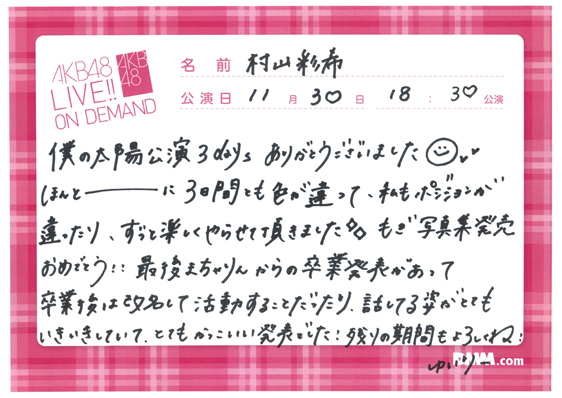 AKB48
LIVE!!
ON DEMAND
AKB
48
名前 村山彩希
公演日 11月30日 18:30公演
僕の太陽公演3daysありがとうございました
ほんとーーーに3日間とも色が違って、私もポジションが
違ったり、ずっと楽しくやらせて頂きました もぎ写真集発売
おめでとう!! 最後まちゃりんからの卒業発表があって
卒業後は改名して活動することだったり、話してる姿がとても
いきいきしていて、とてもかっこいい発表でした!残りの期間もよろしくね!
DMM.com
ゆいりー